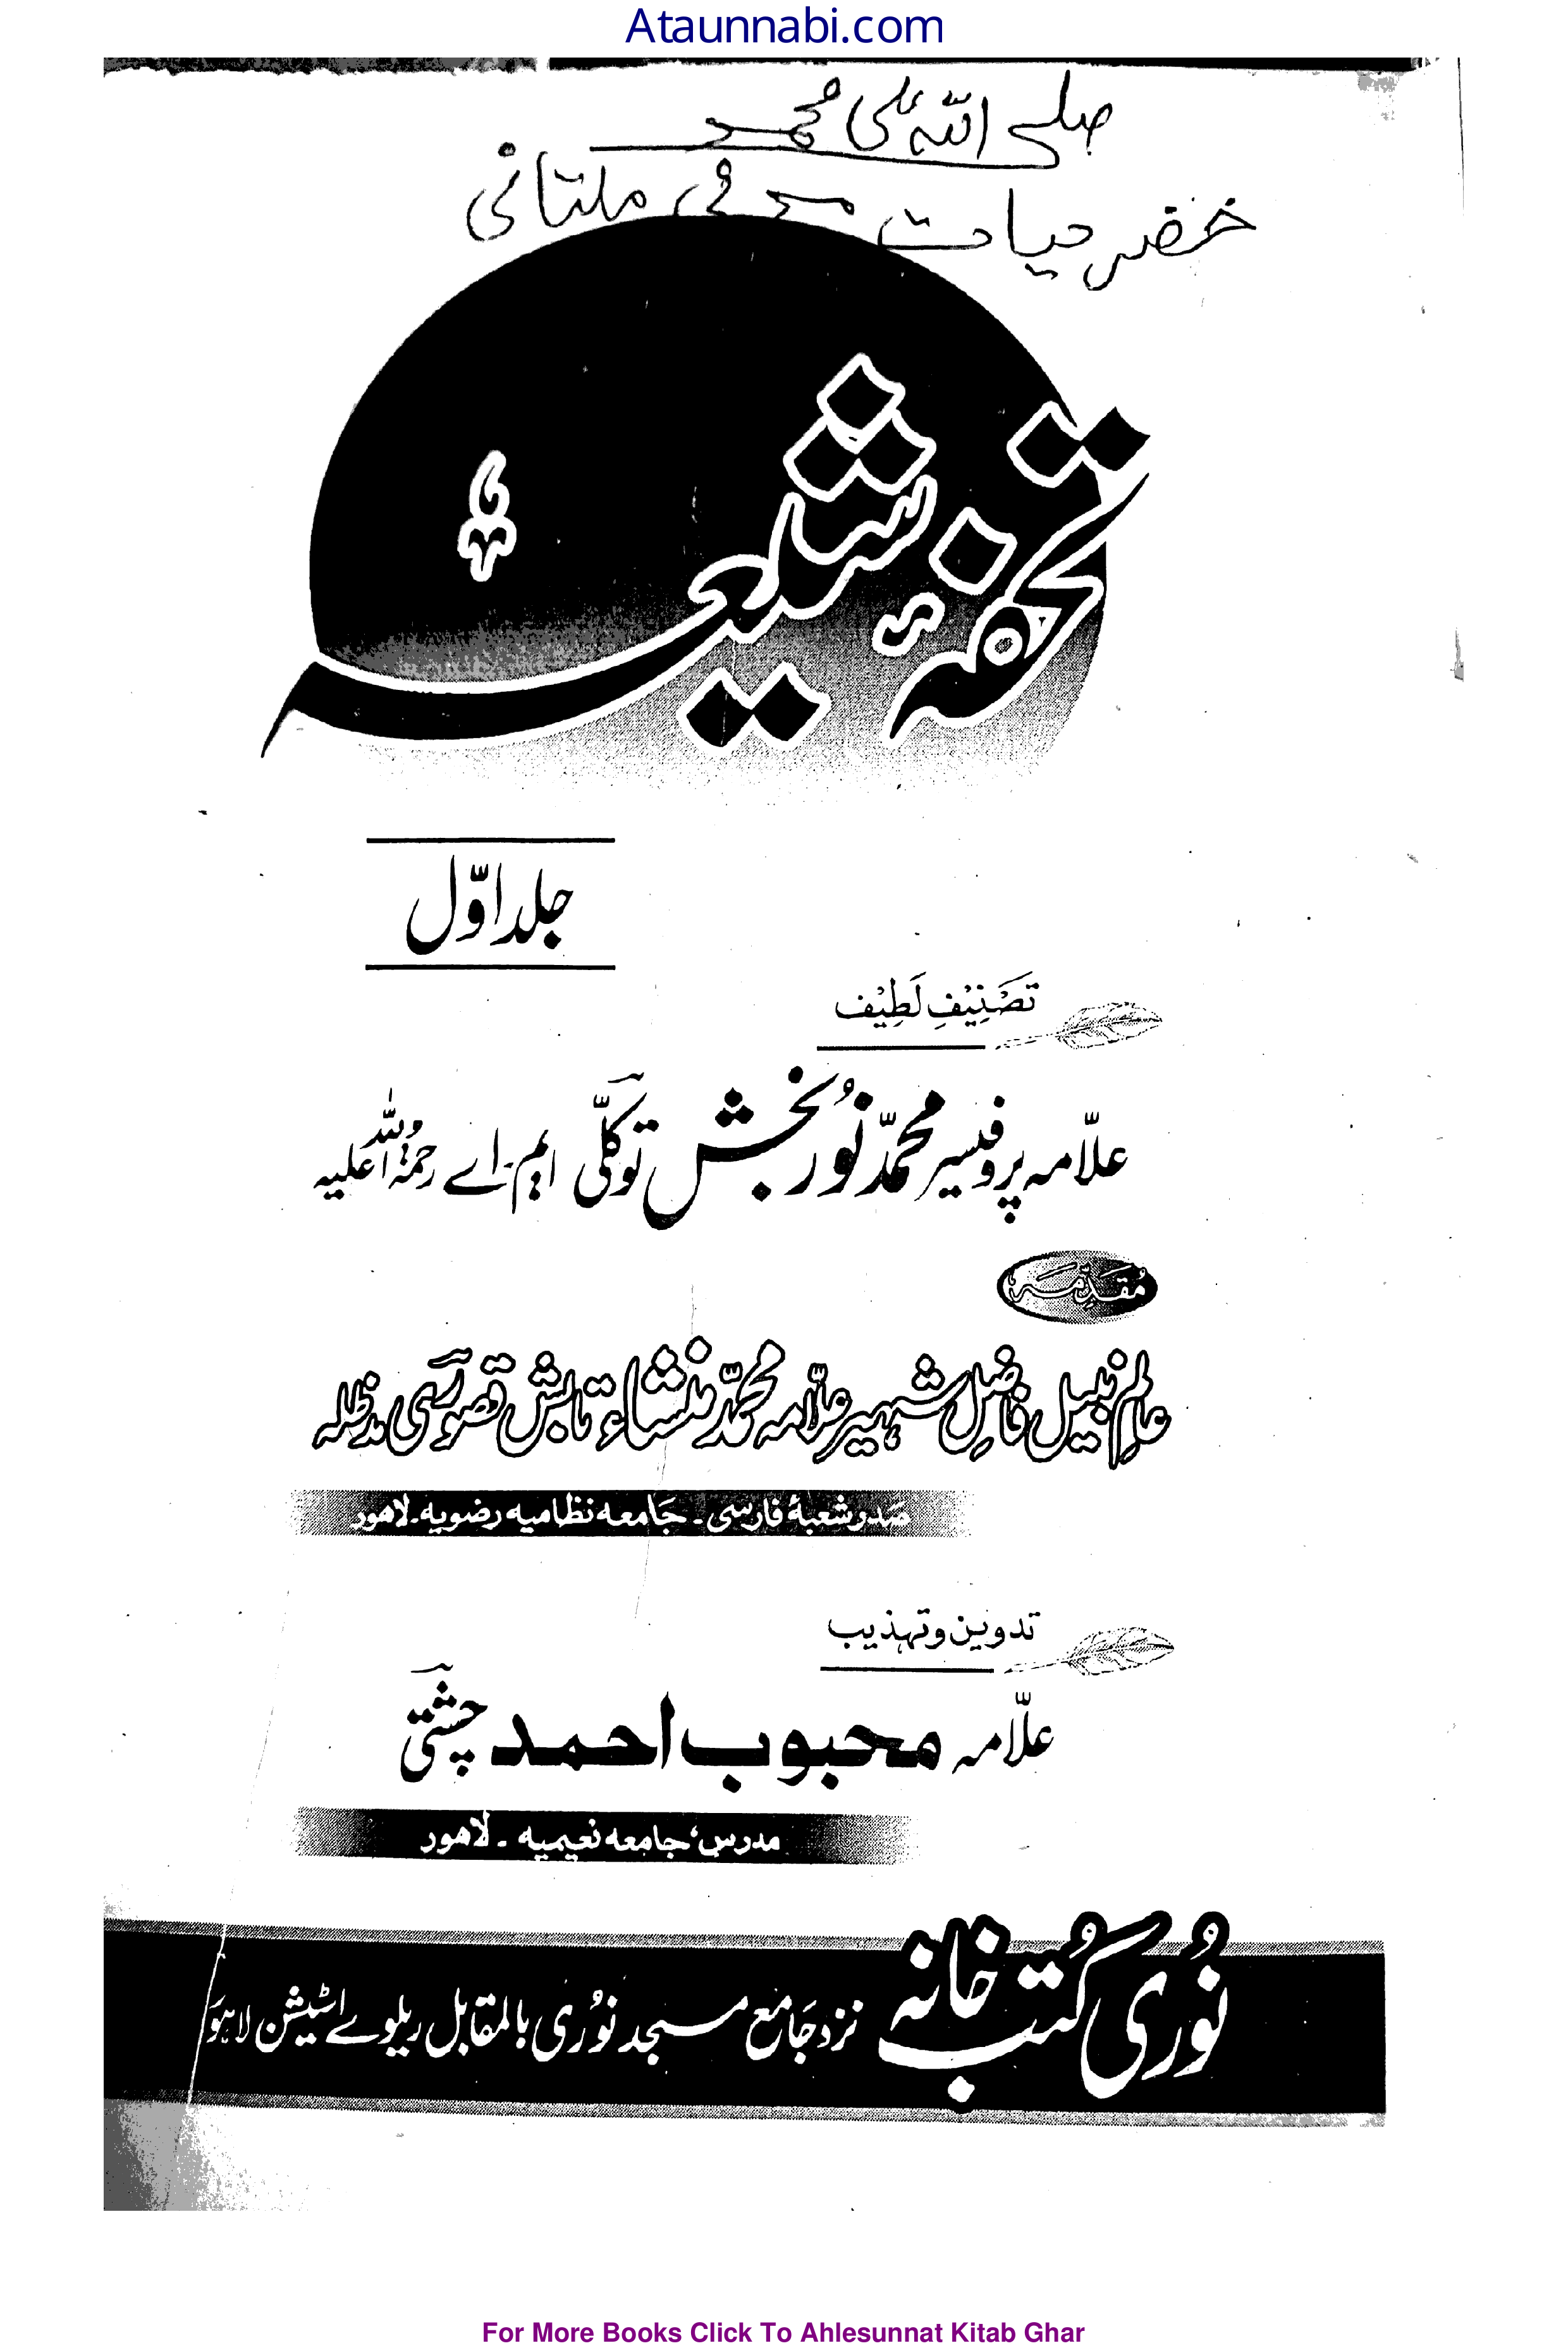 Ataunnabi.com
صلی اللہ علی محمد
خضر حیات ملتانی
تحفۂ شیعہ
جلد اوّل
تَصْنِیْفِ لَطِیْف
علاّمہ پروفیسر محمّد نُور بخش توکلّی ایم-اے رحمۃ اللہ علیہ
مُقَدِّمَہ
عالمِ نبیل فاضلِ شہیر علاّمہ محمّد منشاء تابش قصوری مدظلہ
صَدر شعبۂ فارسی - جَامعہ نظامیہ رضویہ-لاھور
تدوین و تہذیب
علاّمہ محبوب احمد چشتی
مدرس، جامعہ نعیمیہ - لاھور
نُوری کُتب خانہ
نزد جَامع مسجد نُوری بالمقابل ریلوے اسٹیشن لاہور
For More Books Click To Ahlesunnat Kitab Ghar